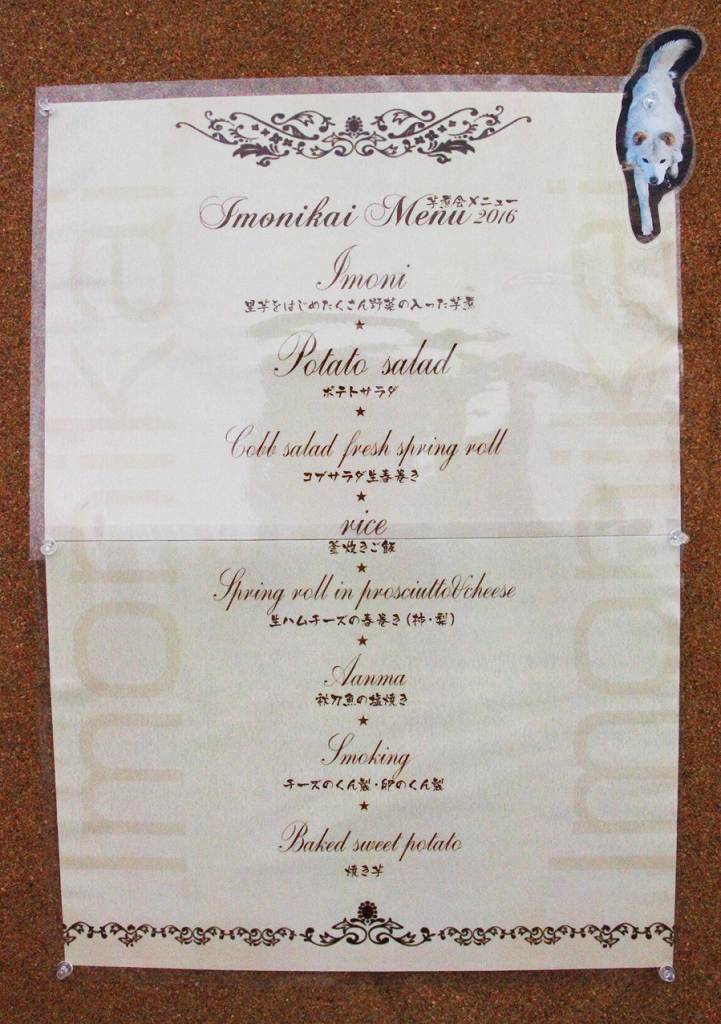 芋煮会メニュー
Imonikai Menu 2016
Imoni
里芋をはじめたくさん野菜の入った芋煮
★
Potato salad
ポテトサラダ
★
Cobb salad fresh spring roll
コブサラダ生春巻き
★
rice
釜炊きご飯
★
Spring roll in prosciutto&cheese
生ハムチーズの春巻き(柿・梨)
★
Aanma
秋刀魚の塩焼き
★
Smoking
チーズのくん製・卵のくん製
★
Baked sweet potato
焼き芋
Imonikai
Imonikai